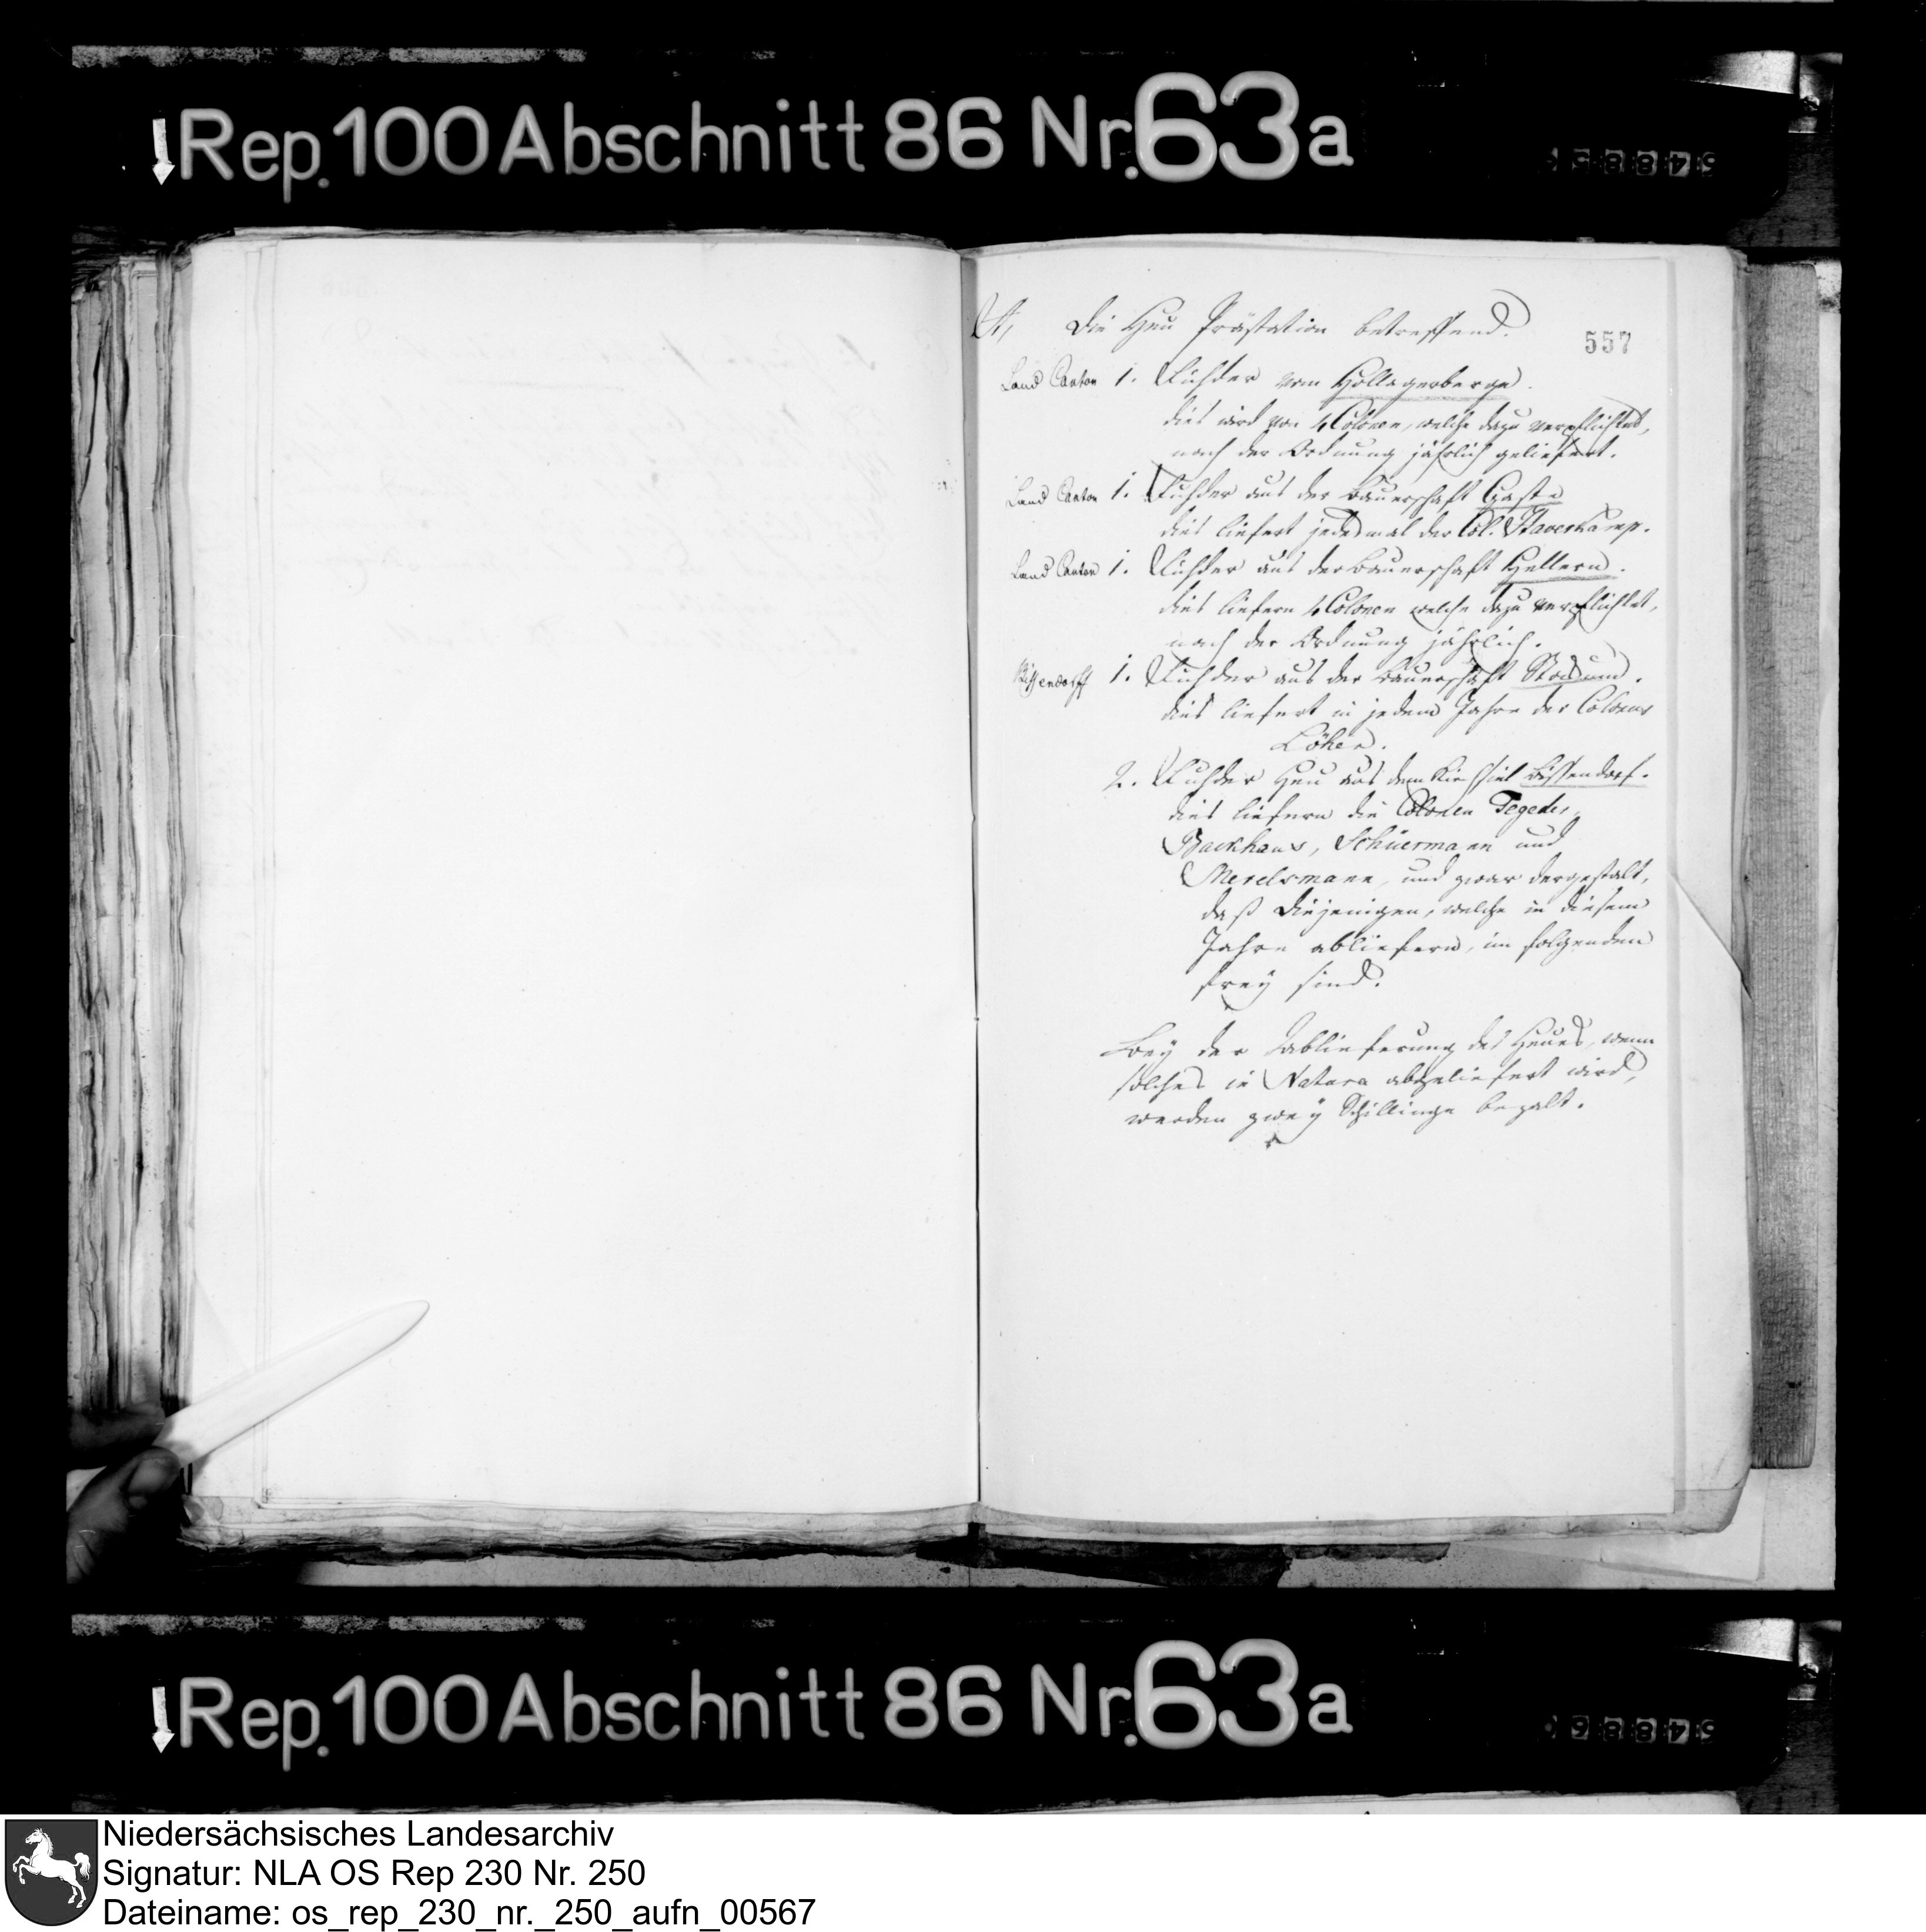 Rep. 100 Abschnitt 86 Nr. 63a
die Heu Prästation betreffend.
557
Land Canton 1. Fuhder vom Hollagerberge.
dies wird von 4 Colonen, welche dazu verpflichtet,
nach der Ordnung jährlich geliefert.
Land Canton 1. Fuhder aus der Bauerschaft Gaste
dies liefert jedesmal der Col. Staverkamp.
Land Canton 1. Fuhder aus der Bauerschaft Hellern.
dies liefern 4 Colonen welche dazu verpflichtet,
nach der Ordnung jährlich.
Bissendorff 1. Fuhder aus der Bauerschaft Stockum.
dies liefert in jedem Jahre der Colonus
Löker.
2. Fuhder Heu aus dem Kirchspiel Bissendorf.
dies liefern die Colonen Tegeder,
Backhaus, Schüermann und
und zwar dergestalt,
daß diejenigen, welche in diesem
Jahre abliefern, im folgenden
frey sind.
Bey der Ablieferung des Heues, wenn
solches in Natura abgeliefert wird,
werden zwey Schillinge bezalt.
Rep. 100 Abschnitt 86 Nr. 63a
Niedersächsisches Landesarchiv
Signatur: NLA OS Rep 230 Nr. 250
Dateiname: os_rep_230_nr._250_aufn_00567